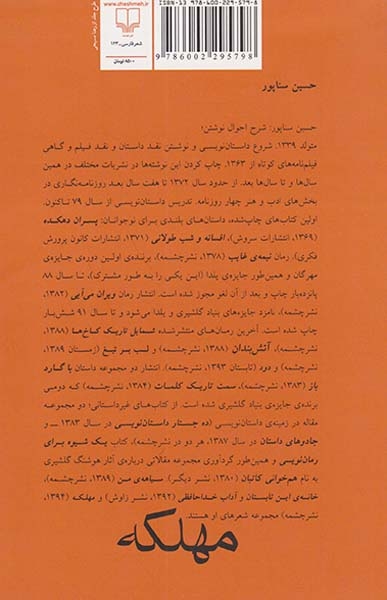 www.cheshmeh.ir
شعر فارسی، ۱۲۳
۸۵۰۰ تومان
ISBN-13 978-600-229-579-8
حسین سناپور
حسین سناپور: شرح احوال نوشتن؛
متولد ۱۳۳۹. شروع داستان‌نویسی و نوشتن نقد داستان و نقد فیلم و گاهی
فیلم‌نامه‌های کوتاه از ۱۳۶۳. چاپ کردن این نوشته‌ها در نشریات مختلف در همین
سال‌ها و تا سال‌ها بعد. از حدود سال ۱۳۷۲ تا هفت سال بعد روزنامه‌نگاری در
بخش‌های ادب و هنر چهار روزنامه. تدریس داستان‌نویسی از سال ۷۹ تاکنون.
اولین کتاب‌های چاپ‌شده، داستان‌های بلندی برای نوجوانان: پسران دهکده
(۱۳۶۹، انتشارات سروش)، افسانه و شب طولانی (۱۳۷۱، انتشارات کانون پرورش
فکری). رمان نیمه‌ی غایب (۱۳۷۸، نشرچشمه)، برنده‌ی اولین دوره‌ی جایزه‌ی
مهرگان و همین‌طور جایزه‌ی یلدا (این یکی را به طور مشترک)، تا سال ۸۸
پانزده‌بار چاپ و بعد از آن لغو مجوز شده است. انتشار رمان ویران می‌آیی (۱۳۸۲،
نشرچشمه)، نامزد جایزه‌های بنیاد گلشیری و یلدا می‌شود و تا سال ۹۱ شش‌بار
چاپ شده است. آخرین رمان‌های منتشرشده شمایل تاریک کاخ‌ها (۱۳۸۸،
نشرچشمه)، آتش‌بندان (۱۳۸۸، نشرچشمه) و لب بر تیغ (زمستان ۱۳۸۹،
نشرچشمه) و دود (تابستان ۱۳۹۳، نشرچشمه). انتشار دو مجموعه داستان با گارد
باز (۱۳۸۳، نشرچشمه)، سمت تاریک کلمات (۱۳۸۴، نشرچشمه) که دومی
برنده‌ی جایزه‌ی بنیاد گلشیری شده است. از کتاب‌های غیرداستانی؛ دو مجموعه
مقاله در زمینه‌ی داستان‌نویسی (ده جستار داستان‌نویسی در سال ۱۳۸۳ ــ و
جادوهای داستان در سال ۱۳۸۷ هر دو در نشرچشمه)، کتاب یک شیوه برای
رمان‌نویسی و همین‌طور گردآوری مجموعه مقالاتی درباره‌ی آثار هوشنگ گلشیری
به نام هم‌خوانی کاتبان (۱۳۸۰، نشر دیگر). سیاهه‌ی من (۱۳۸۹، نشرچشمه)،
خانه‌ی این تابستان و آداب خداحافظی (۱۳۹۲، نشر زاوش) و مهلکه (۱۳۹۴،
نشرچشمه) مجموعه شعرهای او هستند.
مهلکه